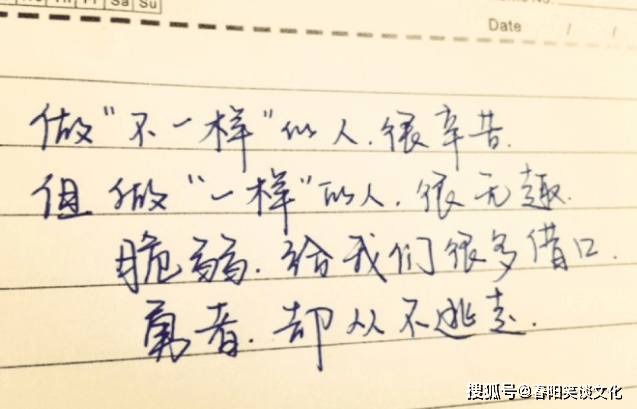 Sa Su
Date / /
做"不一样"的人.很辛苦.
但做"一样"的人.很无趣.
脆弱.给我们很多借口.
勇者.却从不逃走.
搜狐号@春阳笑谈文化